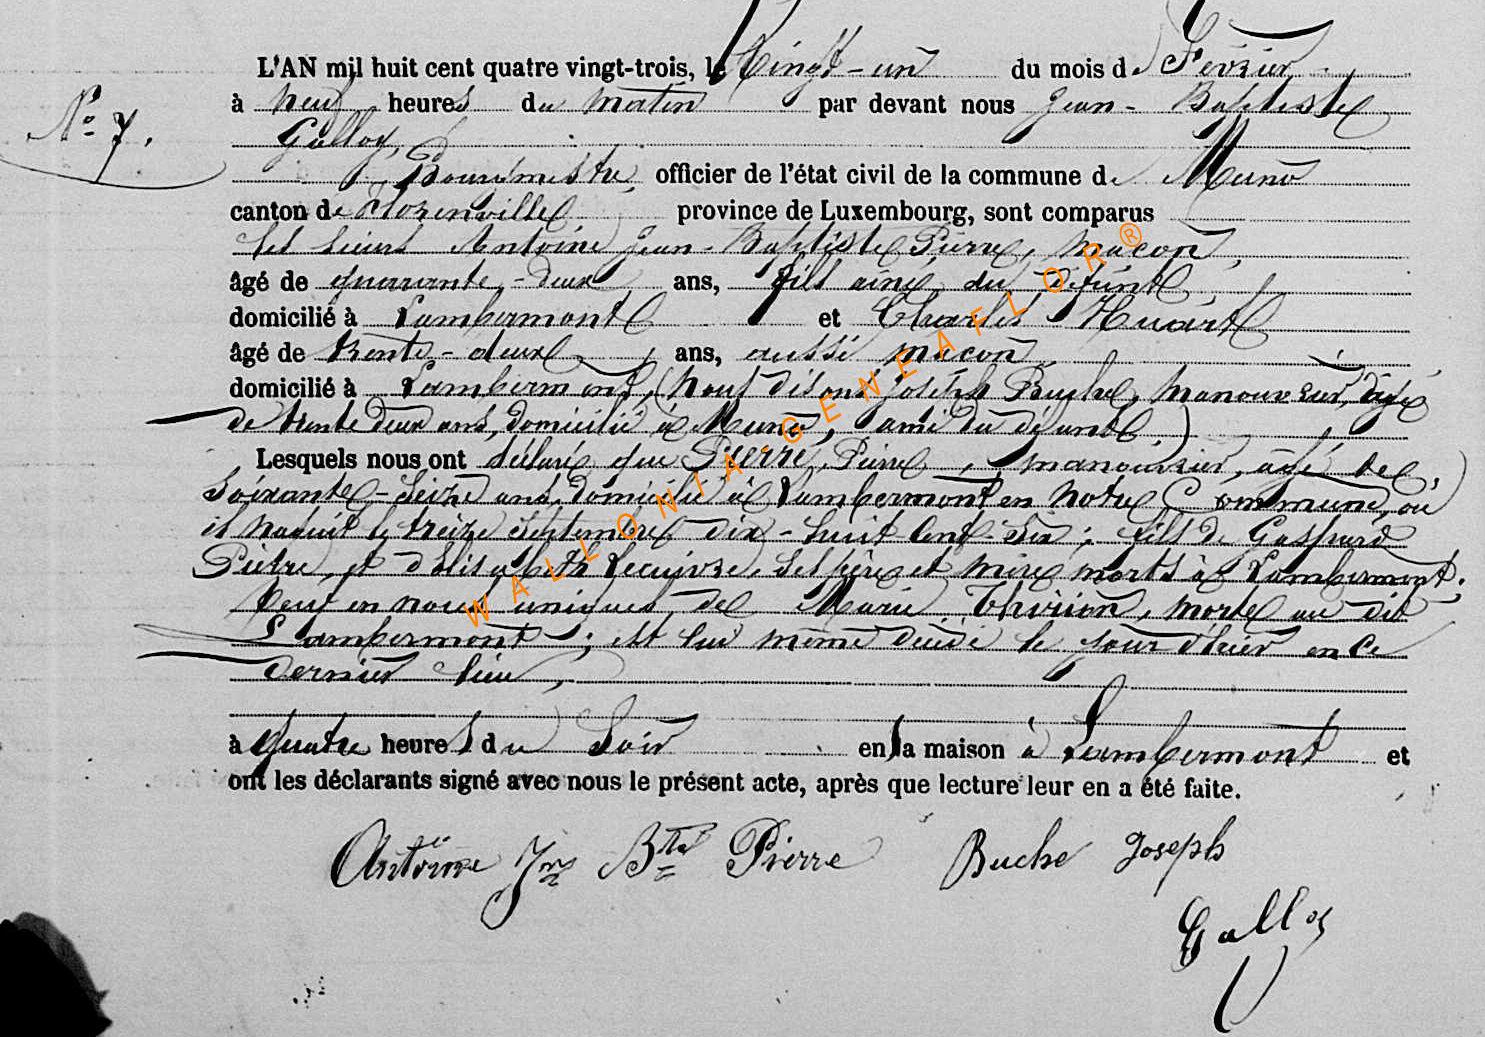 L'AN mil huit cent quatre vingt-trois, le Vingt-un du mois de Février
N° 7. à neuf heures du matin par devant nous Jean-Baptiste
Galloy,
Bourgmestre, officier de l'état civil de la commune de Muno
canton de Florenville province de Luxembourg, sont comparus
les sieurs Antoine Jean-Baptiste Pierre, maçon,
âgé de quarante-deux ans, fils ainé du défunt,
domicilié à Lambermont et Charles Huart
âgé de trente-deux ans, aussi maçon,
domicilié à Lambermont, (nous disons Joseph Buche, manouvrier, âgé
de trente deux ans, domicilié à Muno, ami du défunt.)
Lesquels nous ont déclaré que Pierre, Pierre, manouvrier, âgé de
soixante-seize ans, domicilié à Lambermont, en notre Commune, où
il naquit le treize septembre dix-huit cent-six; fils de Gaspard
Pierre, et d'Elisabeth Lecuivre, ses père et mère morts à Lambermont;
veuf en noces uniques de Marie Thirion, morte au dit
Lambermont; est lui même décédé le jour d'hier en ce
dernier lieu,
à quatre heures du soir en sa maison à Lambermont et
ont les déclarants signé avec nous le présent acte, après que lecture leur en a été faite.
Antoine Jn Bte Pierre Buche Joseph
Galloy
WALLONIA-GENEAFLOR®